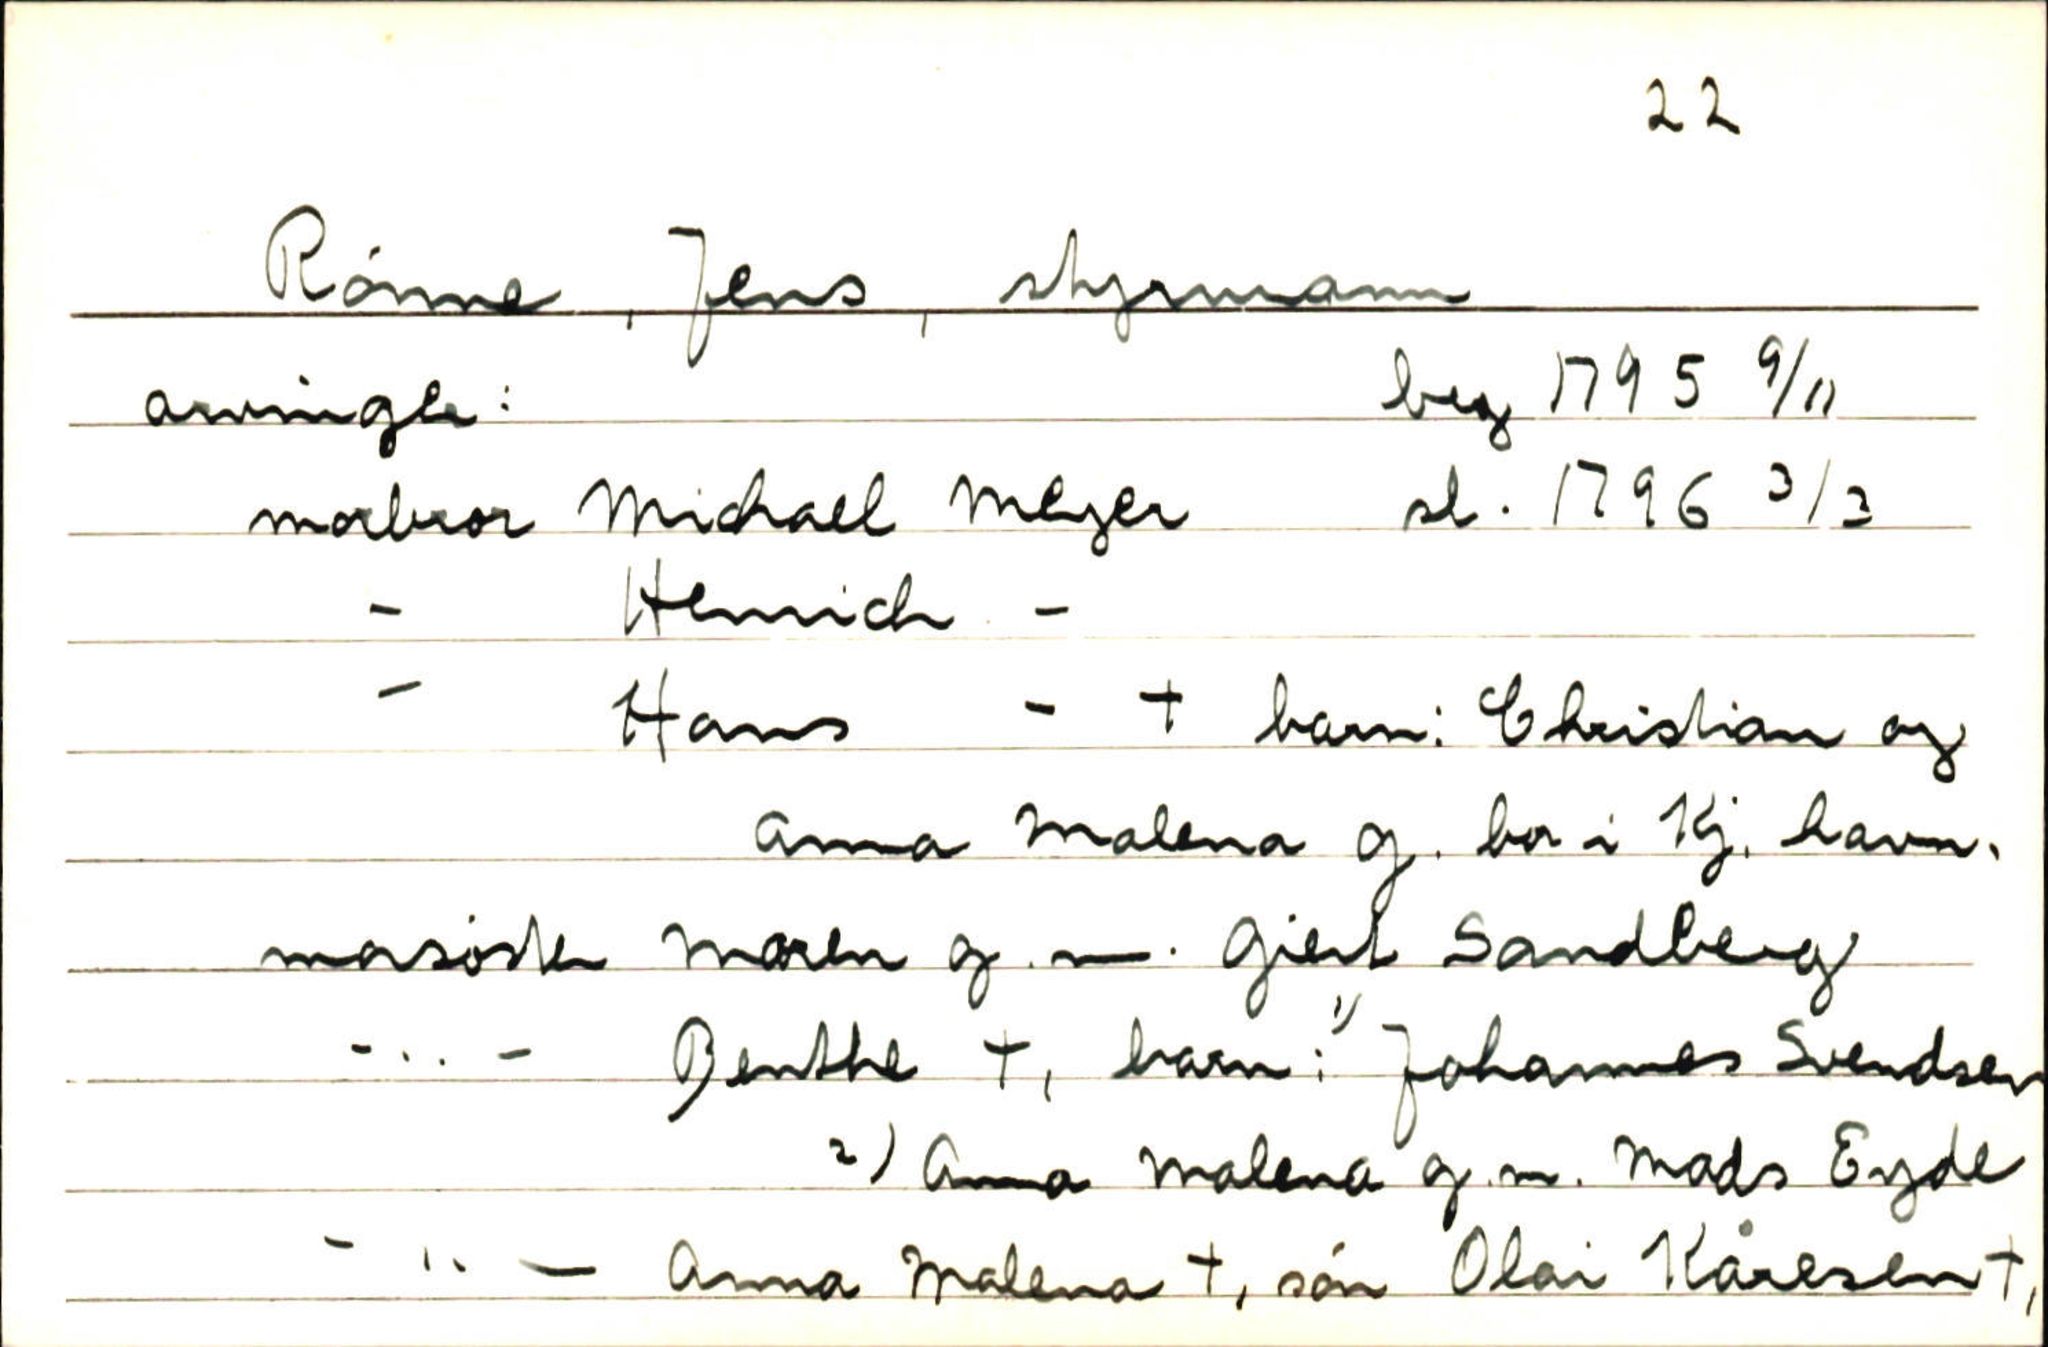 22
Rónne, Jens, styrmann
arvinger: beg 1795 9/11
morbror Michael Meyer sl. 1796 3/3
- Henrich -
- Hans - † barn: Christian og
Anna Malena g. bor i Kj.havn.
morsöster Maren g.m. Giert Sandberg
- .. - Benthe †, barn: 1) Johannes Svendsen
2) Anna Malena g.m. Mads Eyde
- .. - Anna Malena †, són Olai Kåresen †,